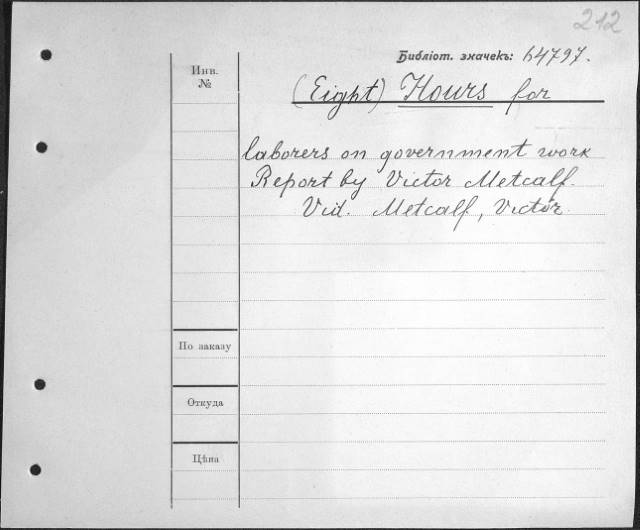 212
Библіот. значекъ: 64797.
Инв.
№
(Eight) Hours for
laborers on government work
Report by Victor Metcalf.
Vid. Metcalf, Victor.
По заказу
Откуда
Цѣна